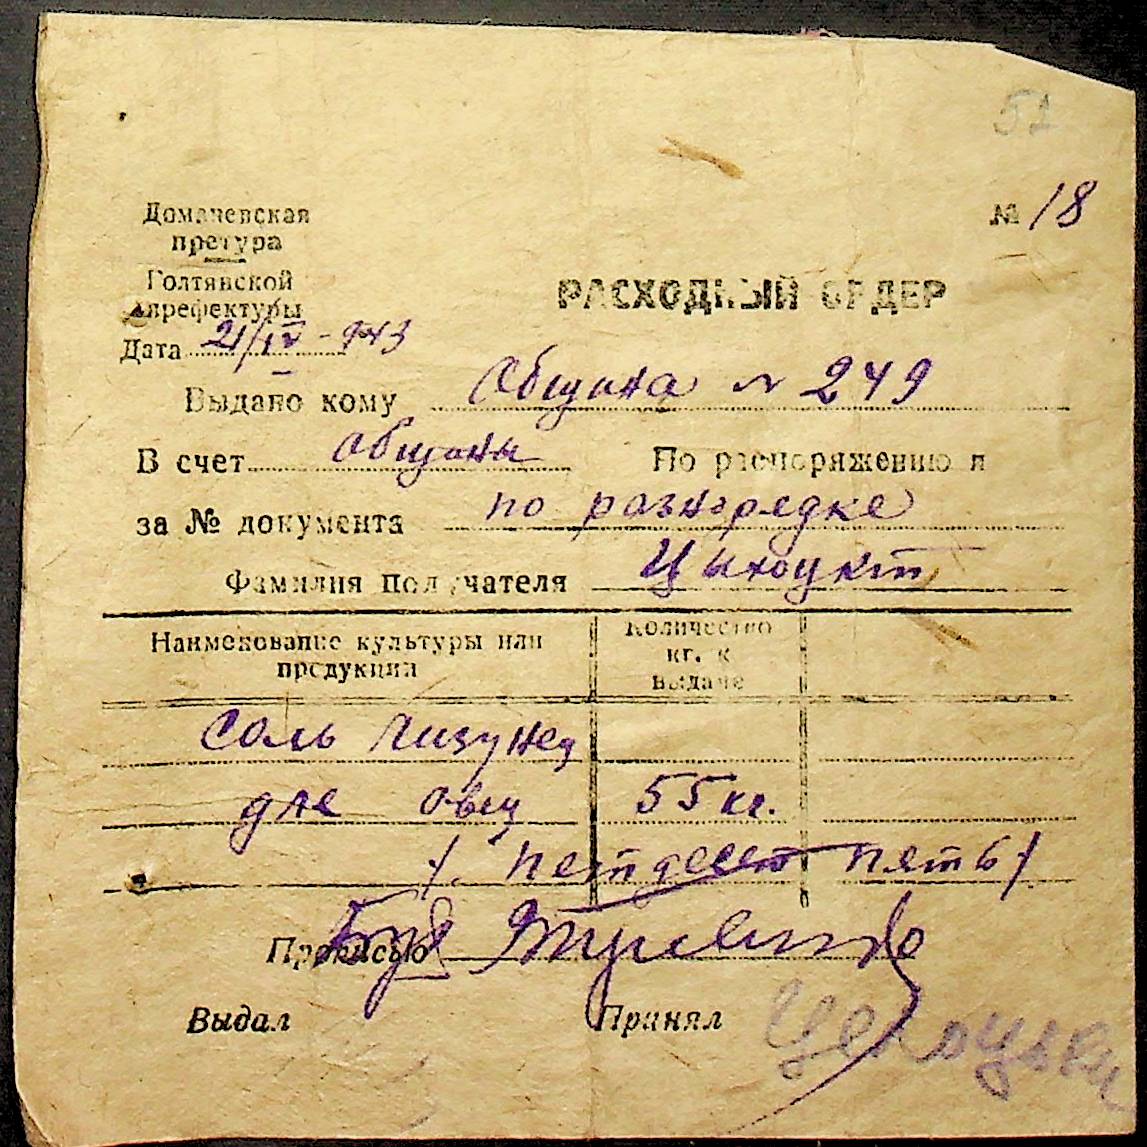 51
Домачевская
претура
№ 18
Голтянской
префектуры
РАСХОДНЫЙ ОРДЕР
Дата 21/IV-943
Выдано кому Община № 249
В счет общины По распоряжению и
за № документа по разнорядке
Фамилия получателя
Наименование культуры или продукции
Количество кг. к выдаче
соль лизунец
для овец 55 кг.
/ петдесят пять /
Прописью
Выдал Принял